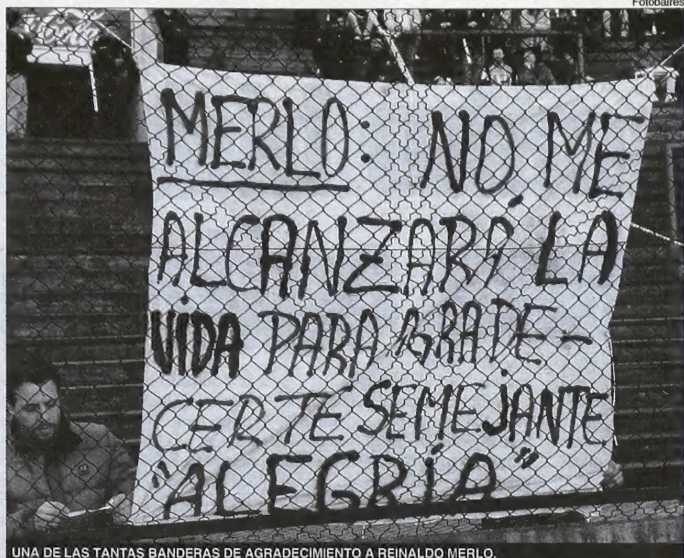 Fotobaires
MERLO: NO ME
ALCANZARÁ LA
VIDA PARA AGRADE-
CERTE SEMEJANTE
"ALEGRÍA"
UNA DE LAS TANTAS BANDERAS DE AGRADECIMIENTO A REINALDO MERLO.